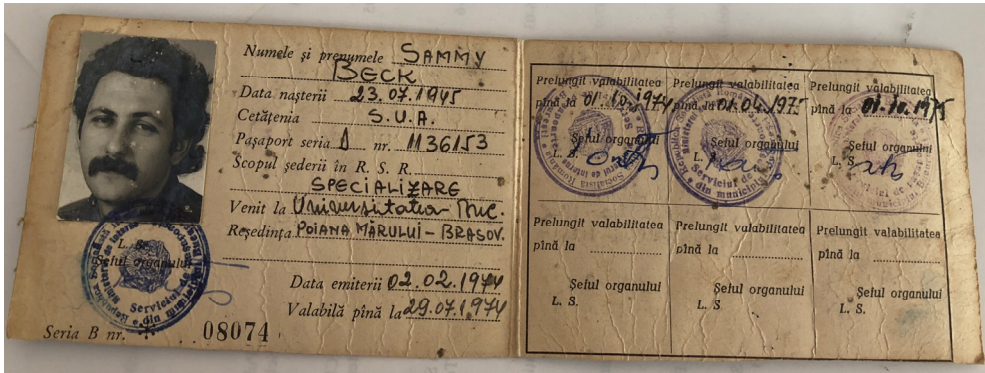 Numele și prenumele SAMMY
BECK
Data nașterii 23.07.1945
Cetățenia S.U.A.
Pașaport seria D nr. 1136153
Scopul șederii în R. S. R.
SPECIALIZARE
Venit la Universitatea Buc.
Reședința POIANA MĂRULUI - BRAȘOV.
L. S.
Șeful organului
Data emiterii 02.02.1974
Valabilă pînă la 29.07.1974
Seria B nr. 08074
Prelungit valabilitatea
pînă la 01.10.1974
Șeful organului
L. S.
Prelungit valabilitatea
pînă la 01.04.1975
Șeful organului
L.
Serviciul de
din municipiul
Prelungit valabilitatea
pînă la 01.10.1975
Șeful organului
L. S.
Prelungit valabilitatea
pînă la
Șeful organului
L. S.
Prelungit valabilitatea
pînă la
Șeful organului
L. S
Prelungit valabilitatea
pînă la
Șeful organului
L. S.